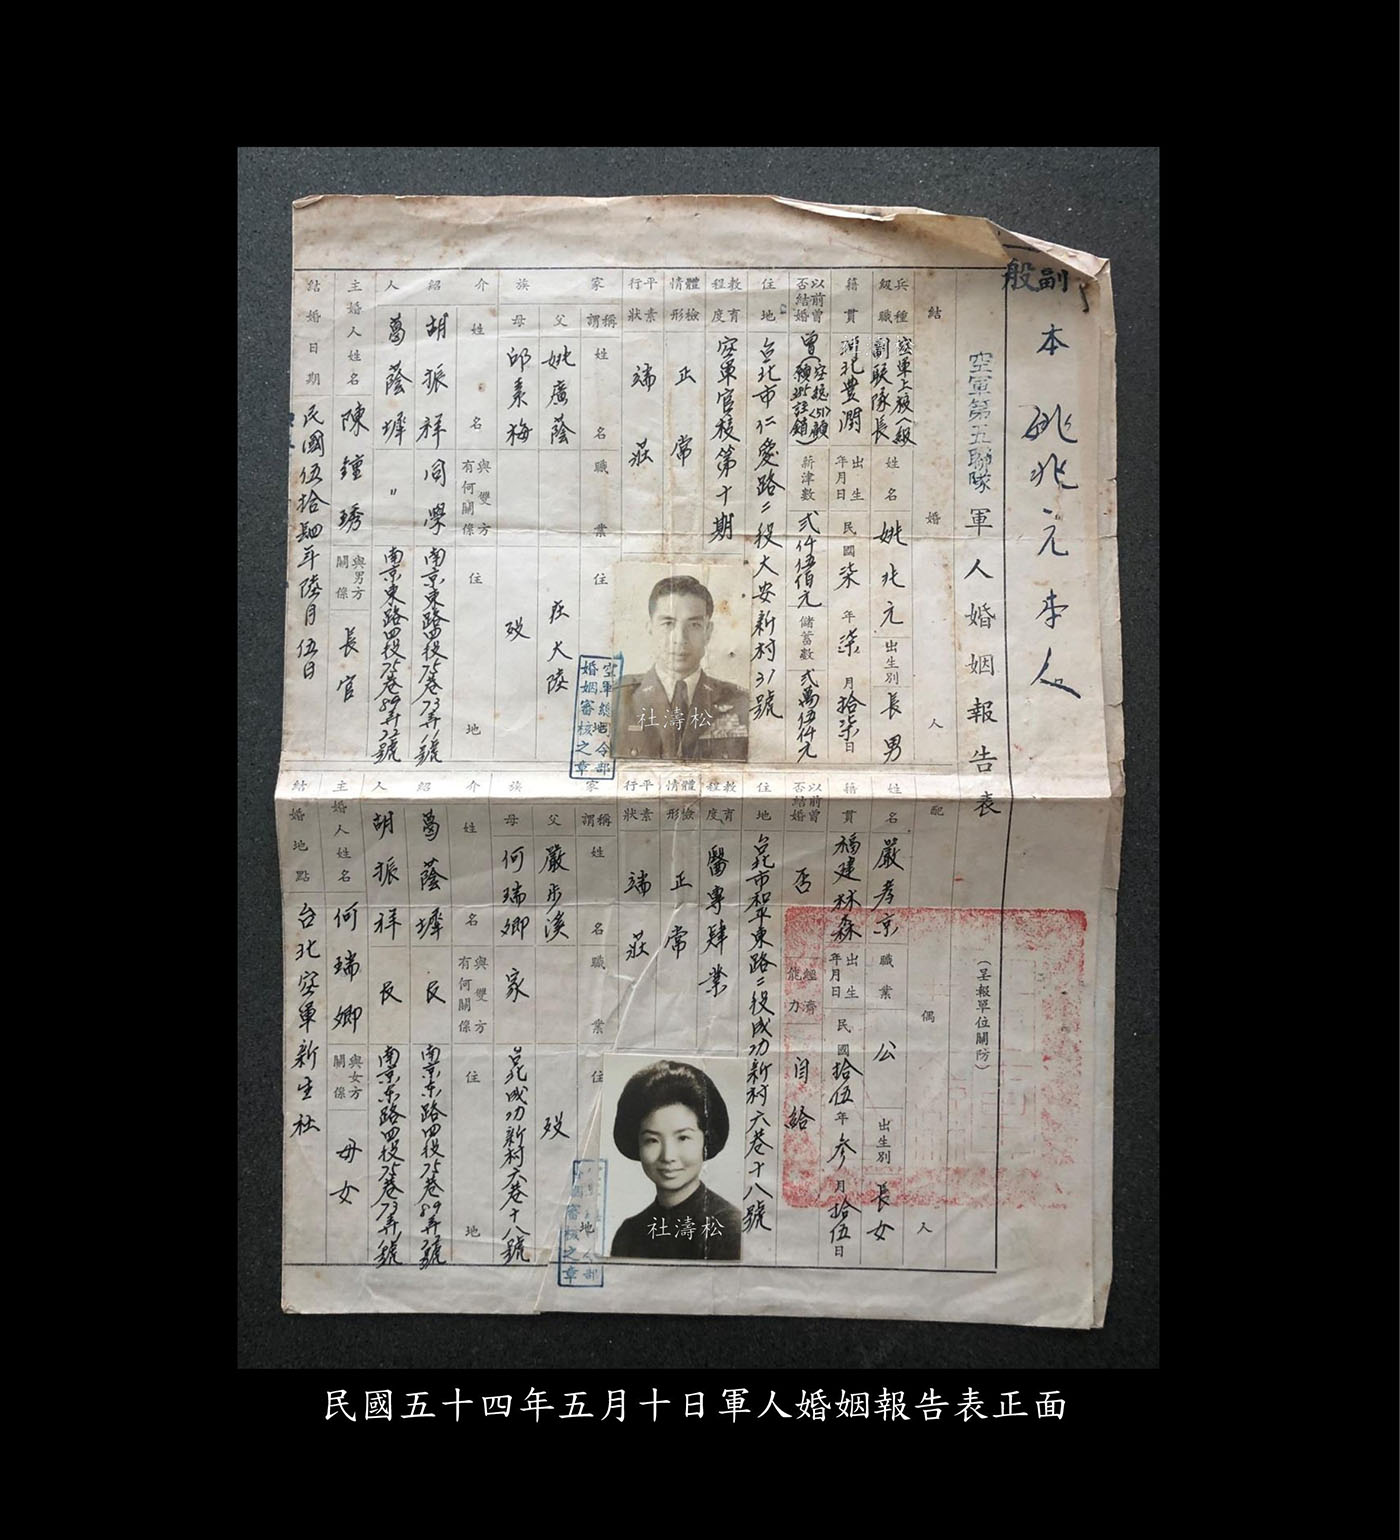 副本
一般
姚兆元本人
空軍第五聯隊軍人婚姻報告表
(呈報單位關防)
結婚人
兵種級職 空軍上校一級副聯隊長
姓名 姚兆元
出生別 長男
籍貫 河北豐潤
出生年月日 民國柒年柒月拾柒日
以前曾否結婚 曾
薪津數 弍仟伍佰元
儲蓄數 弍萬伍仟元
住地 台北市仁愛路二段大安新村31號
教育程度 空軍官校第十期
體檢情形 正常
平素行狀 端莊
家族
稱謂 姓名 職業 住地
父 姚廣蔭 在大陸
母 邱素梅 歿
介紹人
姓名 與雙方有何關係 住地
胡振祥 同學 南京東路四段75巷73弄11號
葛蔭墀 〃 南京東路四段75巷89弄22號
主婚人姓名 陳鍾琇
與男方關係 長官
結婚日期 民國伍拾肆年陸月伍日
空軍總司令部婚姻審核之章
松濤社
配偶人
姓名 嚴孝京
職業 公
出生別 長女
籍貫 福建林森
出生年月日 民國拾伍年參月拾伍日
以前曾否結婚 否
經濟能力 自給
住地 台北市和平東路二段成功新村六巷十八號
教育程度 醫專肄業
體檢情形 正常
平素行狀 端莊
家族
稱謂 姓名 職業 住地
父 嚴步溪 歿
母 何瑞卿 家 台北成功新村六巷十八號
介紹人
姓名 與雙方有何關係 住地
葛蔭墀 友 南京東路四段75巷89弄22號
胡振祥 友 南京東路四段75巷73弄11號
主婚人姓名 何瑞卿
與女方關係 母女
結婚地點 台北空軍新生社
松濤社
民國五十四年五月十日軍人婚姻報告表正面